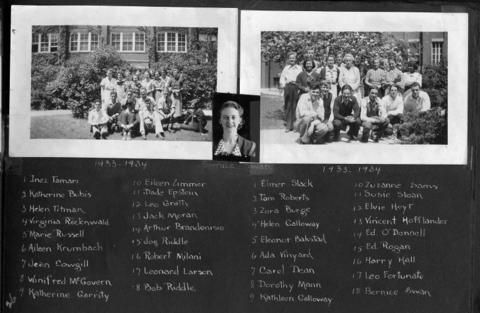 1933-1934
1933-1934
1 Inez Tamari
2 Katherine Bubis
3 Helen Titman
4 Virginia Riekenwald
5 Marie Russell
6 Aileen Krumbach
7 Jean Cowgill
8 Winifred McGovern
9 Katherine Garrity
10 Eileen Zimmer
11 Dade Epstein
12 Leo Gratts
13 Jack Moran
14 Arthur Brandenison
15 Joe Riddle
16 Robert Nylani
17 Leonard Larson
18 Bob Riddle
1 Elmer Slack
2 Tom Roberts
3 Zora Burge
4 Helen Galloway
5 Eleanor Bakstad
6 Ada Vinyard
7 Carol Dean
8 Dorothy Mann
9 Kathleen Galloway
10 Suzanne Sams
11 Susie Sloan
12 Elvie Hoyt
13 Vincent Hofflander
14 Ed. O'Donnell
15 Ed. Rogan
16 Harry Hall
17 Leo Fortunate
18 Bernice Swan